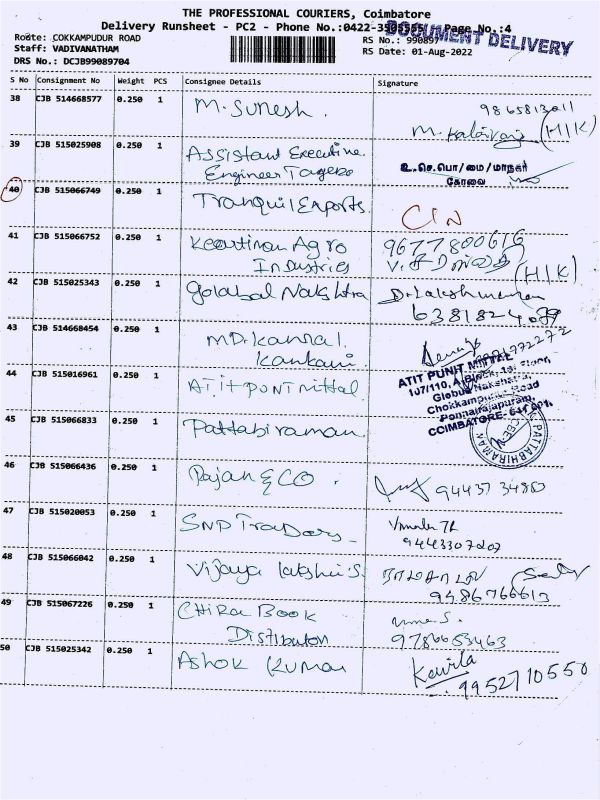 THE PROFESSIONAL COURIERS, Coimbatore
Delivery Runsheet - PC2 - Phone No.:0422- Page No.:4
DOCUMENT DELIVERY
Route: COKKAMPUDUR ROAD
RS No.: 990897
Staff: VADIVANATHAM
RS Date: 01-Aug-2022
DRS No.: DCJB99089704
S No Consignment No Weight PCS Consignee Details Signature
38 CJB 514668577 0.250 1 M. Suresh.
9865813011
M. (H/K)
39 CJB 515025908 0.250 1 Assistant Executive
Engineer
உ.செ.பொ/மை/மாநகர்
கோவை
40 CJB 515066749 0.250 1 Tranquil Exports.
C/N
41 CJB 515066752 0.250 1 Agro
Industries
9677800616
(H/K)
42 CJB 515025343 0.250 1 Golabal Nakshtra
D. Lakshmanan
6381824089
43 CJB 514668454 0.250 1 MD. Kamal.
Kankani.
44 CJB 515016961 0.250 1 Atit punit mittal.
ATIT PUNIT MITTAL
107/110, A Block, 1st Floor,
Globus Nakshatra,
Chokkampudur Road
Ponnairajapuram,
COIMBATORE-641 001.
45 CJB 515066833 0.250 1 Pattabiraman.
PATTABHIRAMAN
46 CJB 515066436 0.250 1 Rajan & CO.
9443734850
47 CJB 515020053 0.250 1 SNP Traders-
9443307202
48 CJB 515066042 0.250 1 Vijaya lakshmi S.
9486766613
49 CJB 515067226 0.250 1 CHiRa Book
Distributon
9786653463
50 CJB 515025342 0.250 1 ASHOK KUMAR
Kavila
9952710550